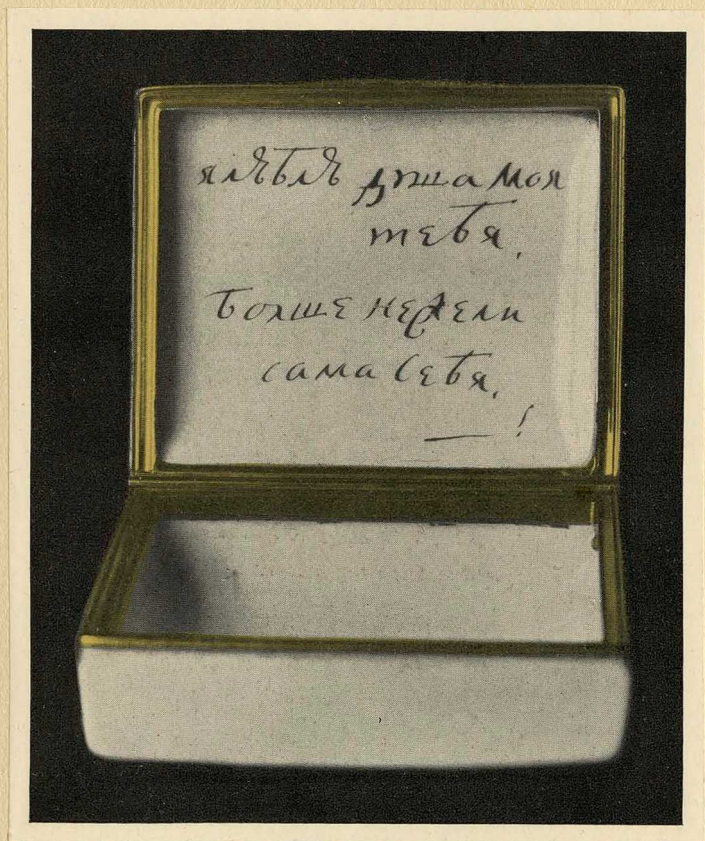 я люблю душа моя
тебя.
болше нежели
сама себя.
— !